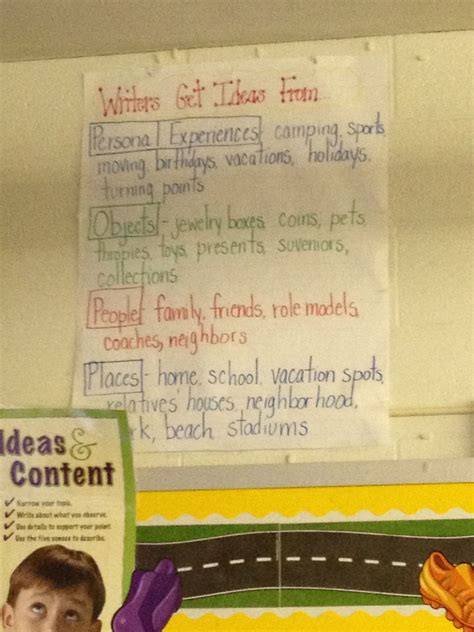 Writers Get Ideas From...
Personal Experiences camping, sports
moving, birthdays, vacations, holidays,
turning points
Objects - jewelry boxes, coins, pets,
throphies, toys, presents, suveniors,
collections
People family, friends, role models,
coaches, neighbors
Places - home, school, vacation spots,
relatives' houses, neighborhood,
rk, beach, stadiums
Ideas &
Content
Narrow your topic.
Write about what you observe.
Use details to support your point
Use the five senses to describe.